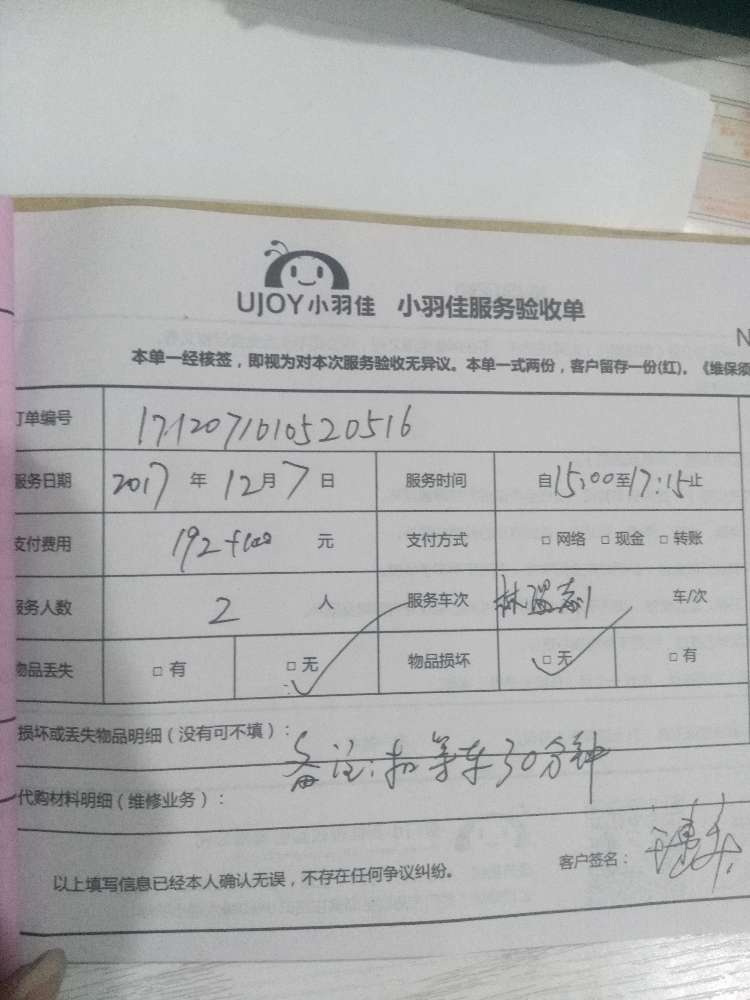 UJOY小羽佳 小羽佳服务验收单
N
本单一经核签，即视为对本次服务验收无异议。本单一式两份，客户留存一份(红)。《维保须
订单编号 1712071010520516
服务日期 2017 年 12月 7 日 服务时间 自15:00至17:15止
支付费用 192+100 元 支付方式 □ 网络 □ 现金 □ 转账
服务人数 2 人 服务车次 林 车/次
物品丢失 □ 有 □ 无 物品损坏 □ 无 □ 有
损坏或丢失物品明细（没有可不填）：
备注：扣等车30分钟
代购材料明细（维修业务）：
以上填写信息已经本人确认无误，不存在任何争议纠纷。 客户签名：